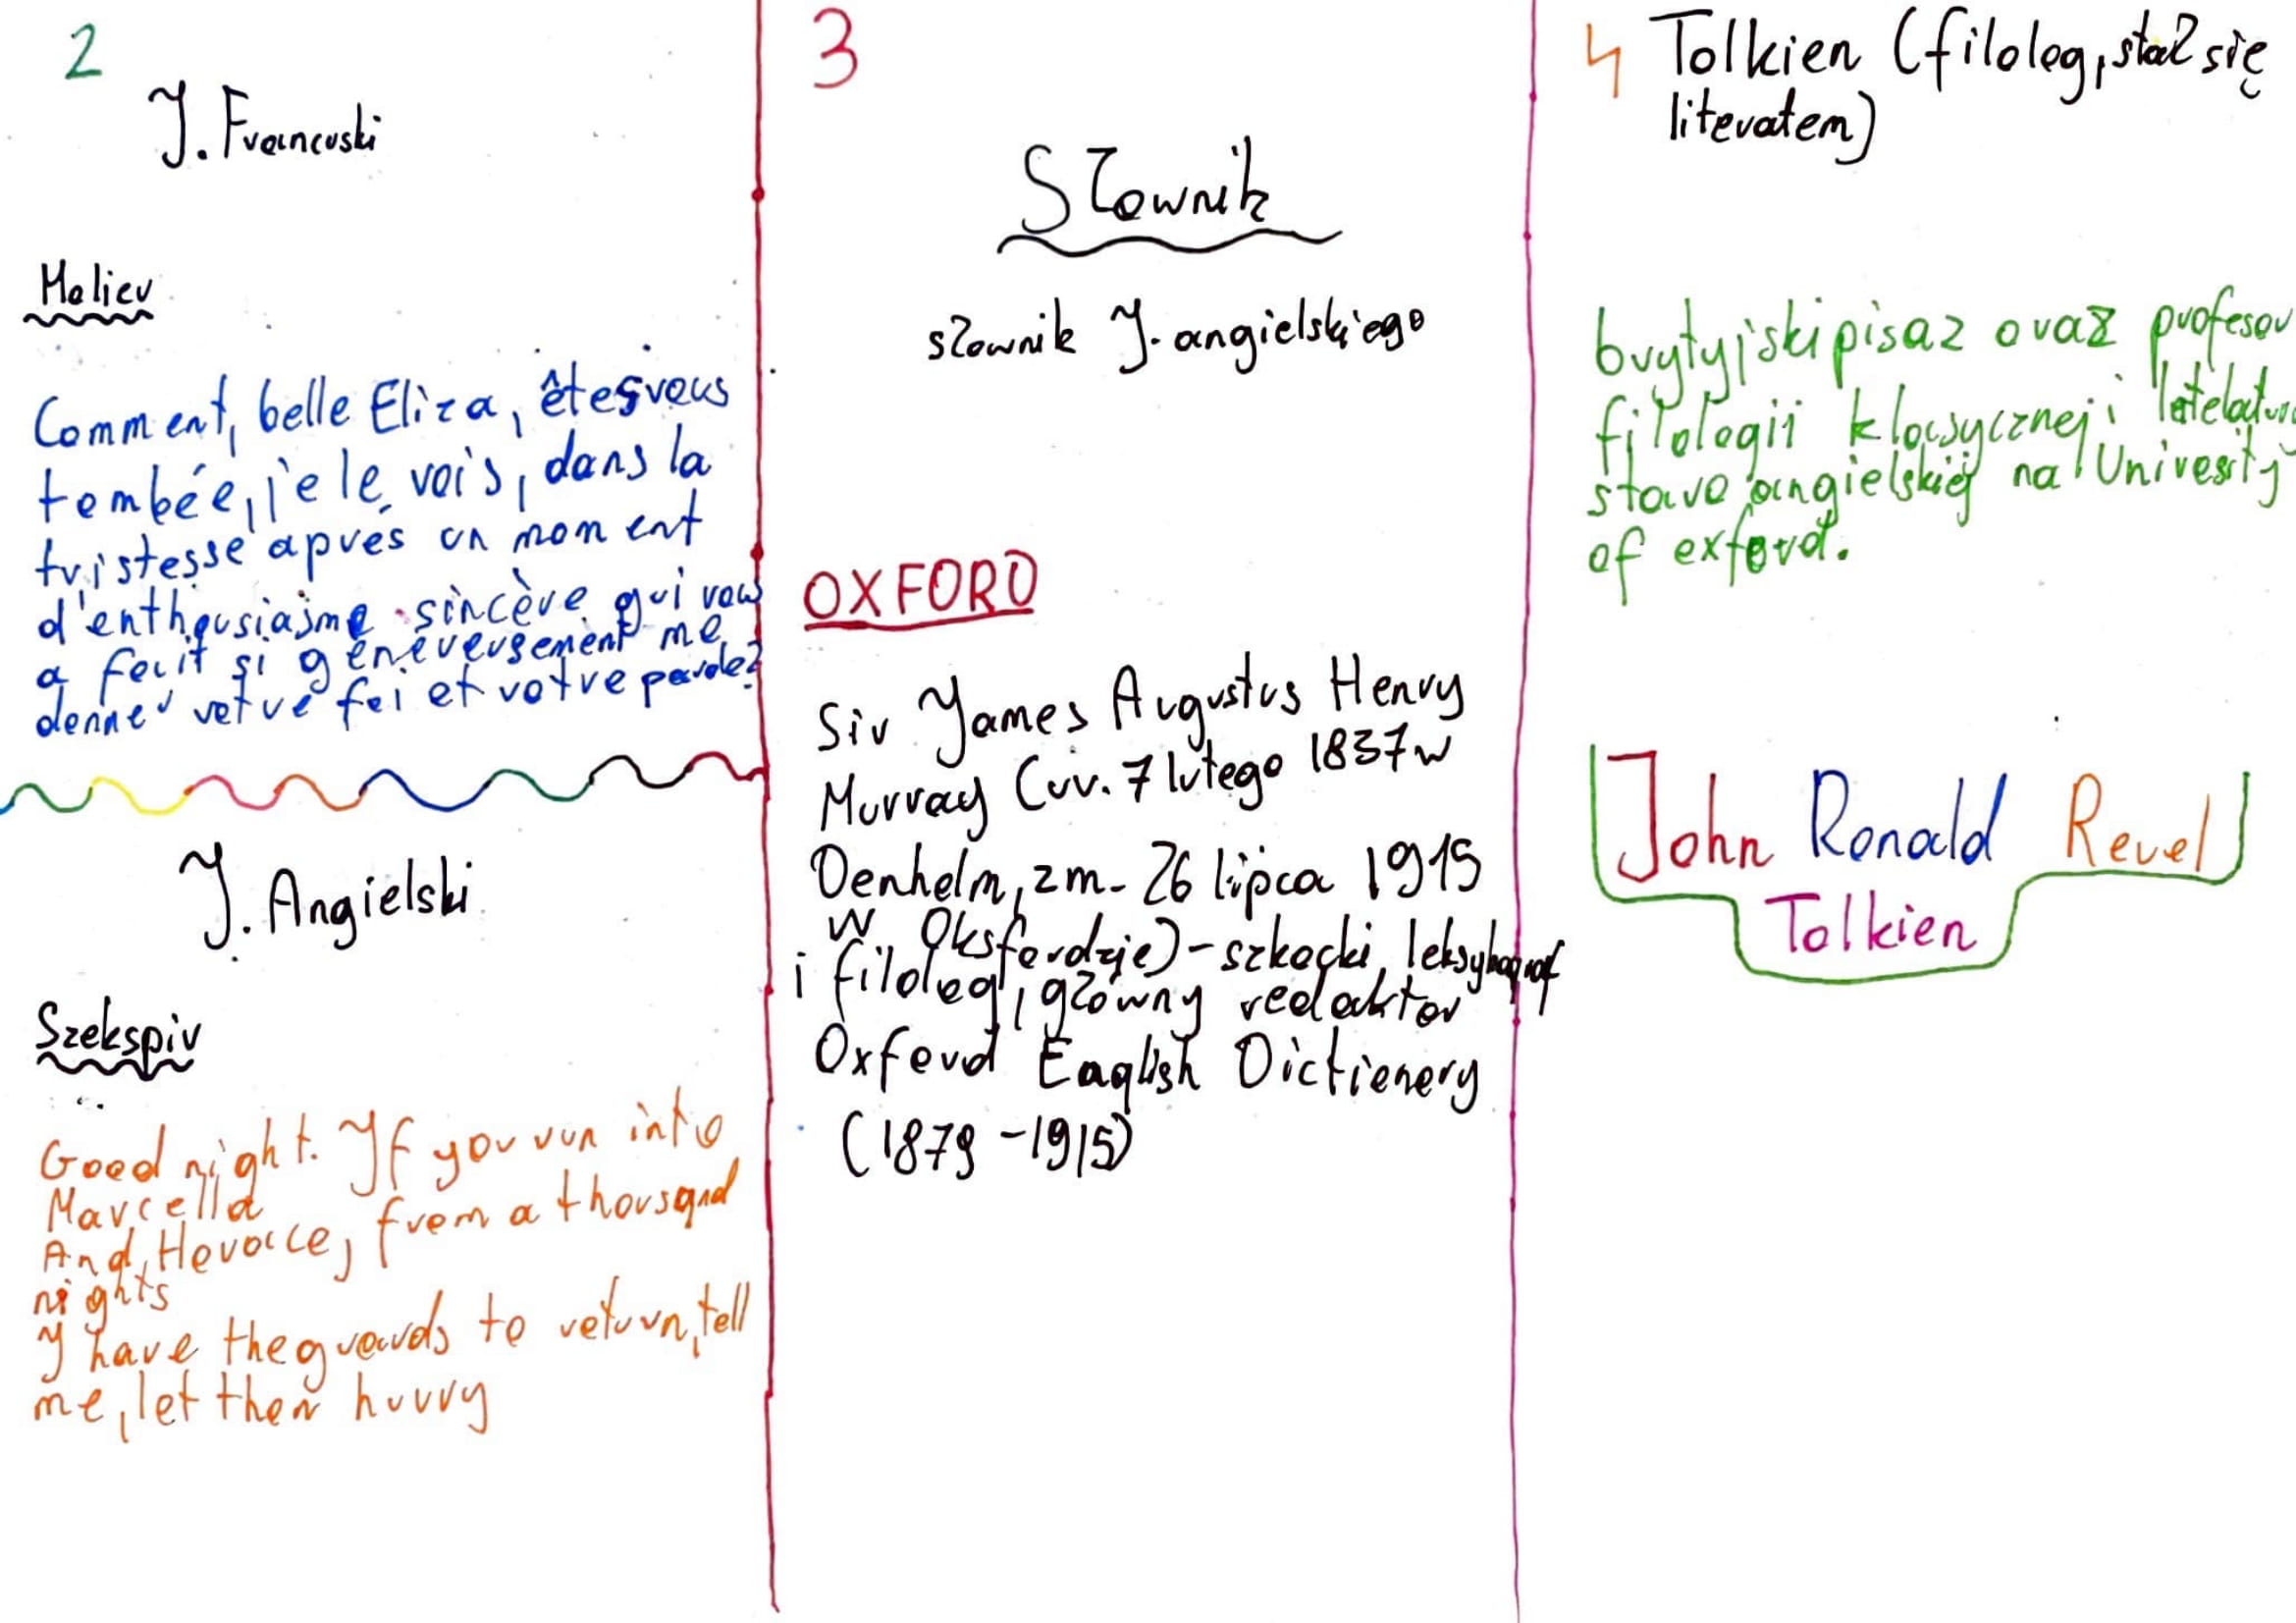 2
J. Francuski
Molier
Comment, belle Eliza, êtes vous
tombée, je le vois, dans la
tristesse aprés un moment
d'enthousiasme sincère qui vous
a fait si généreusement me
donner votre foi et votre parole?
J. Angielski
Szekspir
Good night. If you run into
Marcella
And, Horace, from a thousand
nights
I have the guards to return, tell
me, let then hurry
3
Słownik
słownik J. angielskiego
OXFORD
Sir James Augustus Henry
Murray (ur. 7 lutego 1837 w
Denholm, zm. 26 lipca 1915
w Oksfordzie) - szkocki leksykograf
i filolog, główny redaktor
Oxford English Dictionery
(1879 - 1915)
4 Tolkien (filolog, stał się
literatem)
brytyjski pisaz oraz profesor
filologii klasycznej i
staro angielskiej na Univesity
of oxford.
John Ronald Reuel
Tolkien